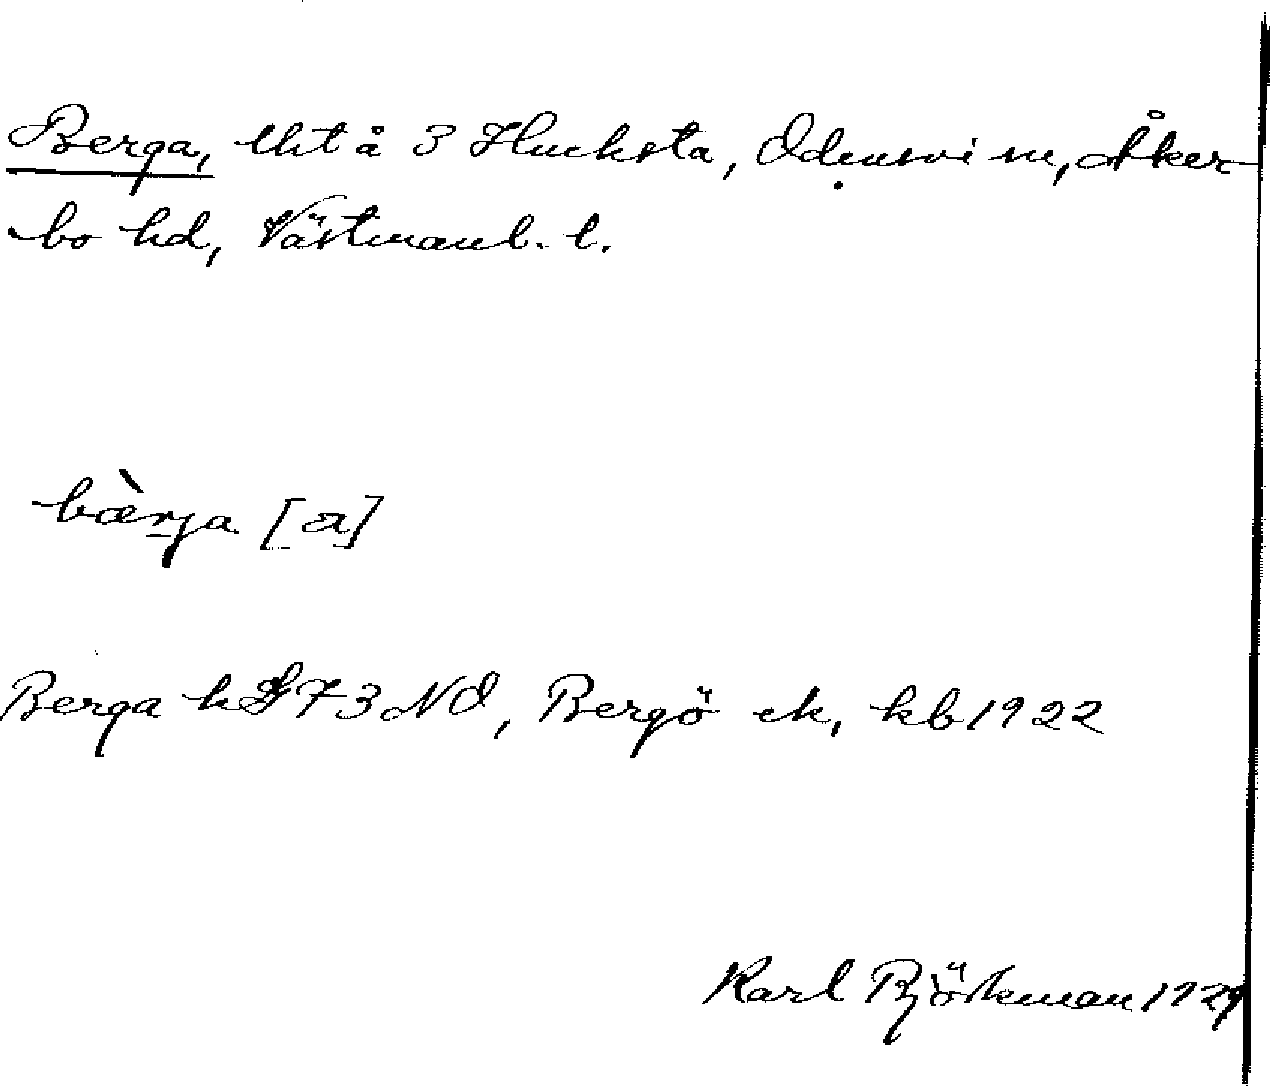 Berga, lht å 3 Hucksta, Odensvi sn, Åker-
bo hd, Västmanl. l.
bæ̀rja [a]
Berga k 73 NO, Bergö ek, kb 1922
Karl Björkman 1929